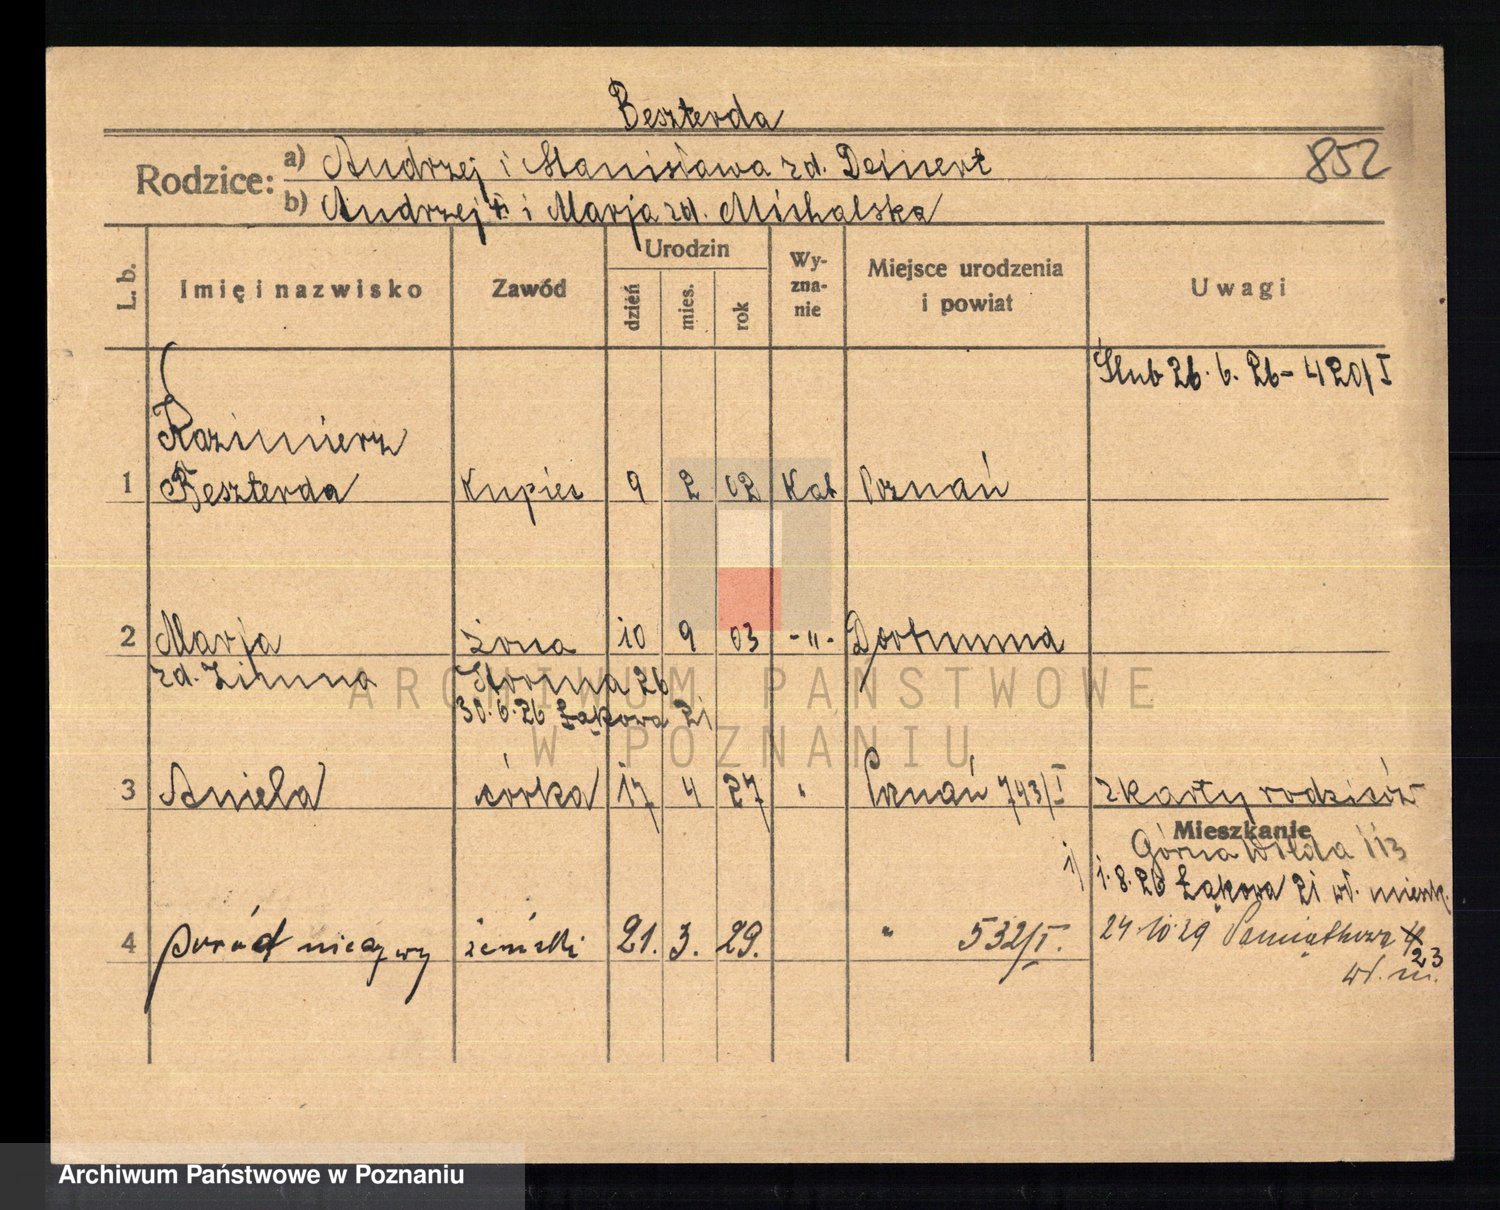 Beszterda
Rodzice: a) Andrzej i Stanisława zd. Deinert
852
b) Andrzej † i Marja zd. Michalska
L. b. Imię i nazwisko Zawód Urodzin dzień mies. rok Wyznanie Miejsce urodzenia i powiat Uwagi
Ślub 26. 6. 26 - 420/I
Kazimierz
1 Beszterda Kupiec 9 2 02 Kat Poznań
2 Marja żona 10 9 03 -"- Dortmund
zd. Zimna 26
30. 6. 26 Łąkowa 21
ARCHIWUM PAŃSTWOWE
W POZNANIU
3 Aniela córka 17 4 27 " Poznań 743/I z karty rodziców
Mieszkanie
Górna Wilda 113
1) 1. 8. 26 Łąkowa 21 wł. mieszk.
4 poród nieżywy żeński 21. 3. 29. " 532/I. 24 10 29 Pamiątkowa
23
wł. m.
Archiwum Państwowe w Poznaniu